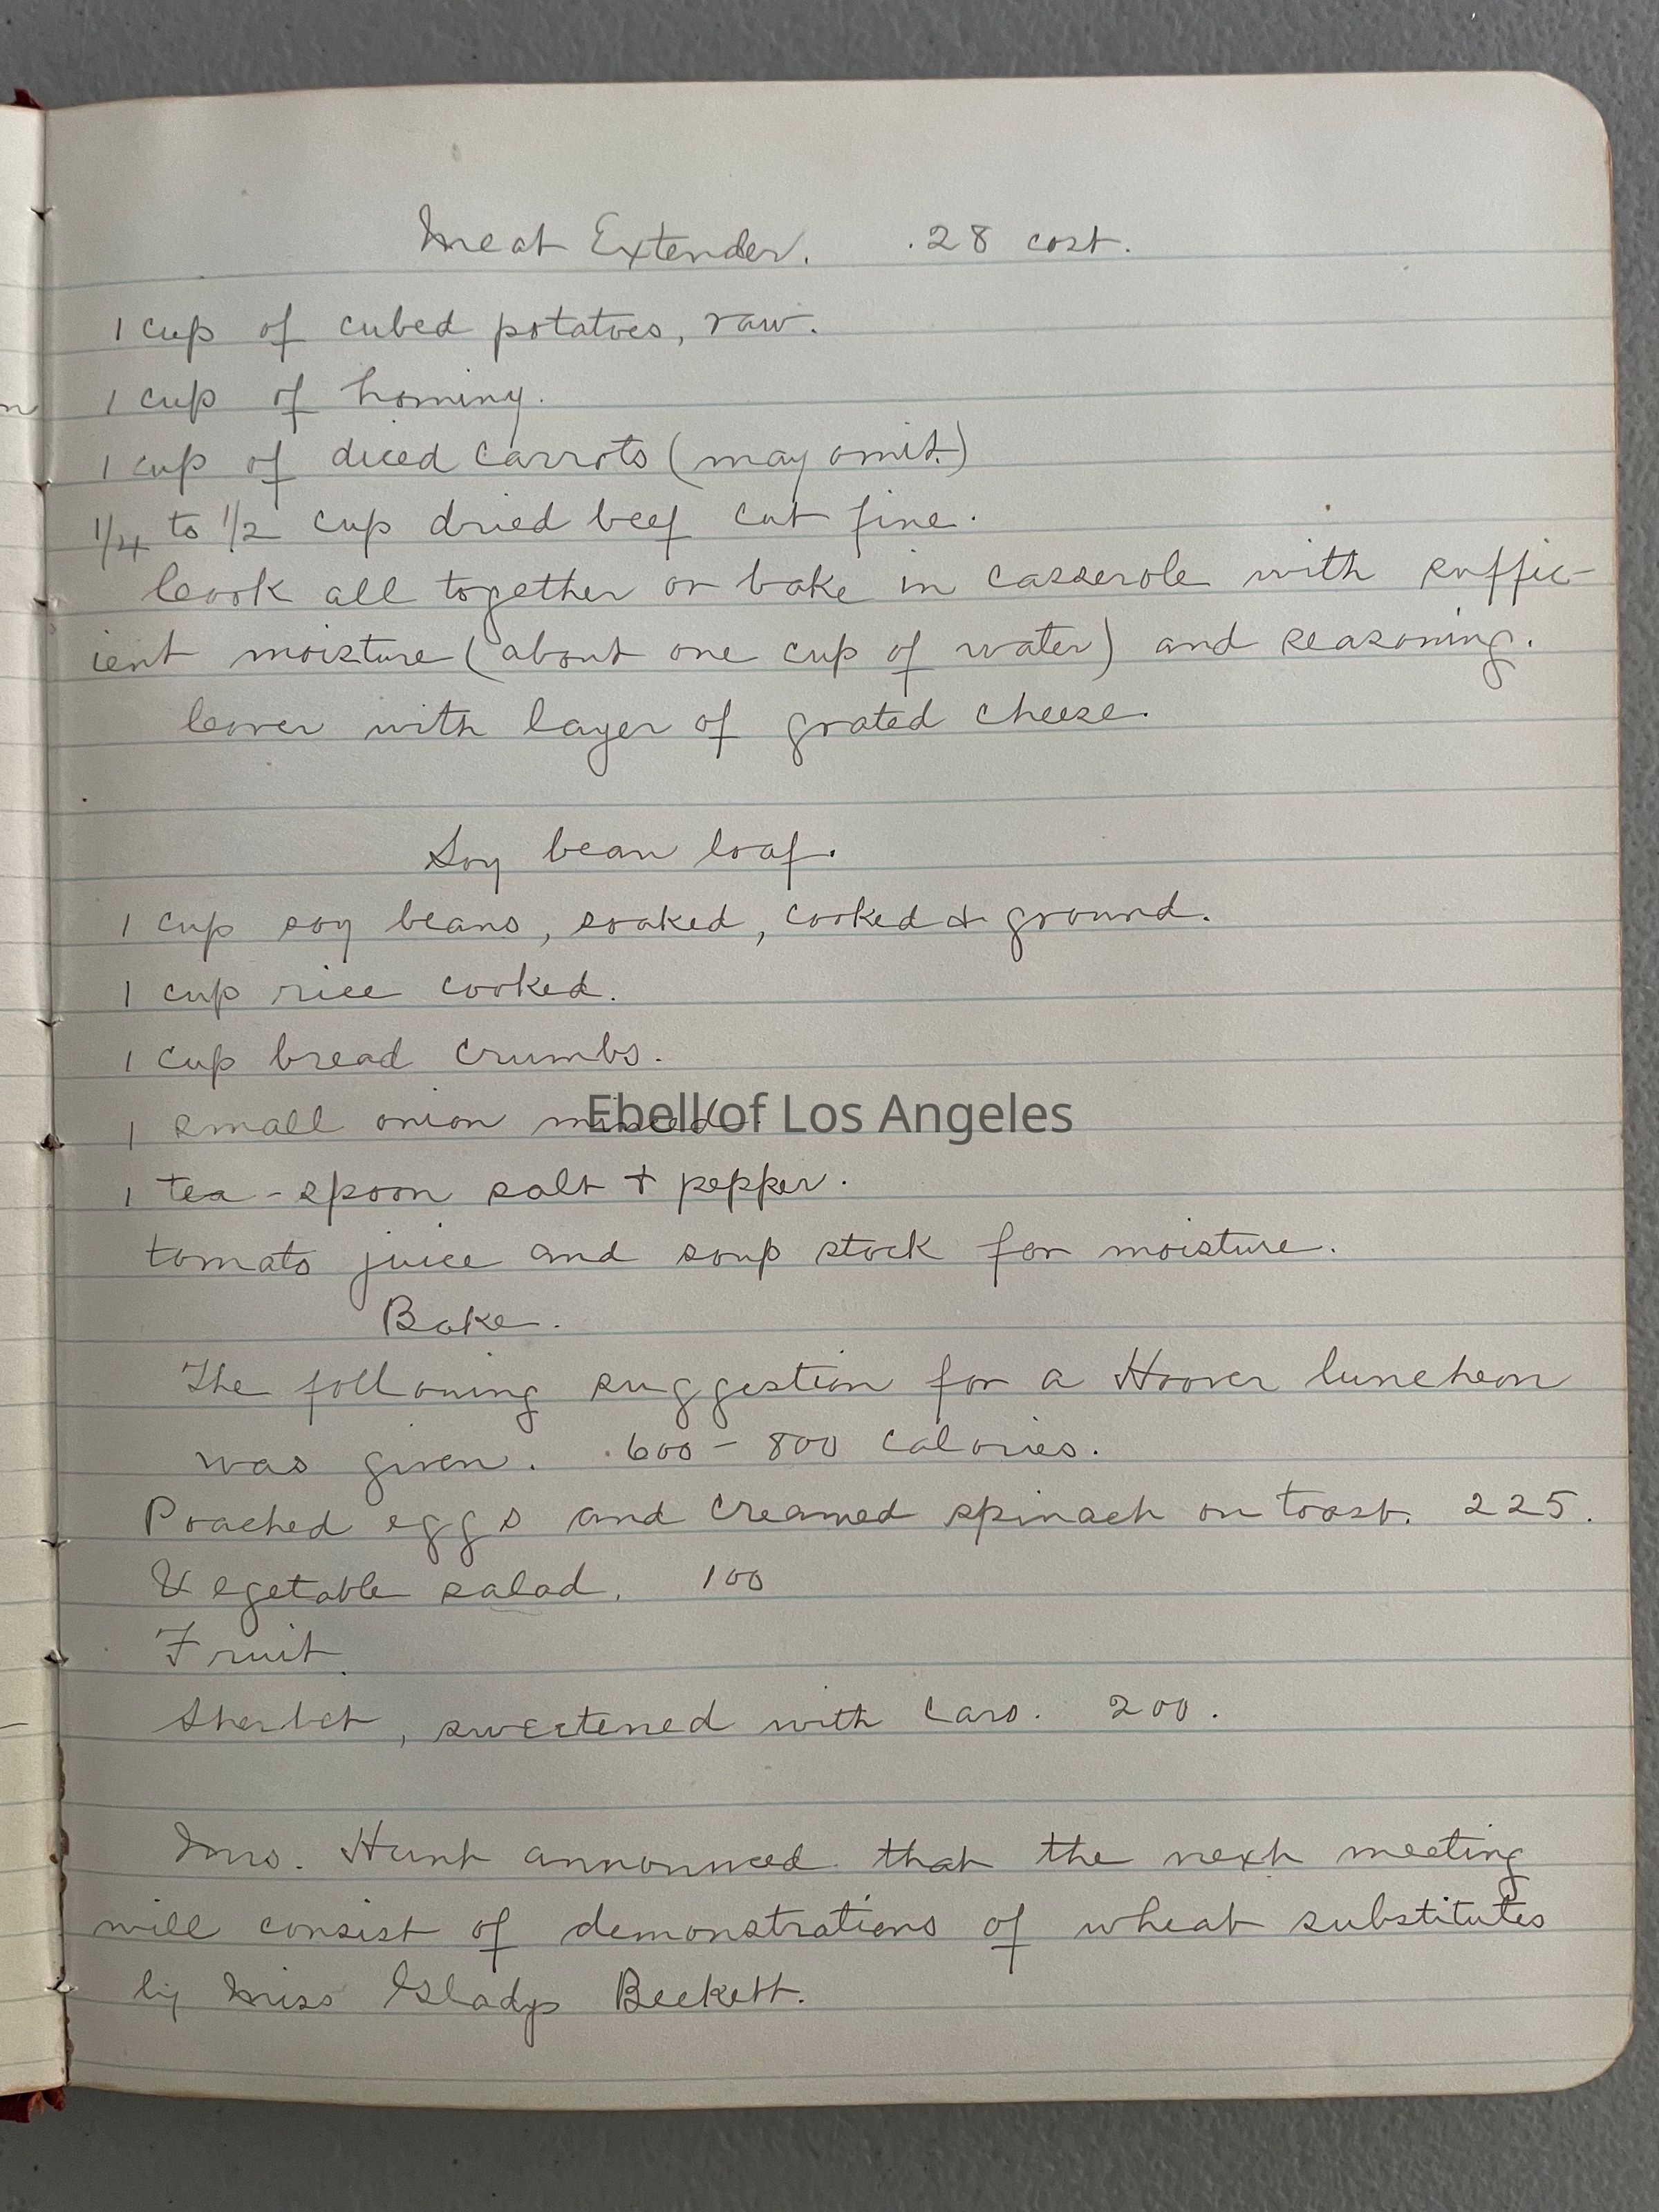 Meat Extender. .28 cost.
1 cup of cubed potatoes, raw.
1 cup of hominy.
1 cup of diced carrots (may omit.)
1/4 to 1/2 cup dried beef cut fine.
Cook all together or bake in casserole with suffic-
ient moisture (about one cup of water) and seasoning.
Cover with layer of grated cheese.
Soy bean loaf.
1 cup soy beans, soaked, cooked & ground.
1 cup rice cooked.
1 cup bread crumbs.
1 small onion minced.
Ebell of Los Angeles
1 tea-spoon salt + pepper.
tomato juice and soup stock for moisture.
Bake.
The following suggestion for a Hoover luncheon
was given. .600 - 800 calories.
Poached eggs and creamed spinach on toast. 225.
Vegetable salad. 100
Fruit.
Sherbet, sweetened with Caro. 200.
Mrs. Hunt announced that the next meeting
will consist of demonstrations of wheat substitutes
by Miss Gladys Beckett.